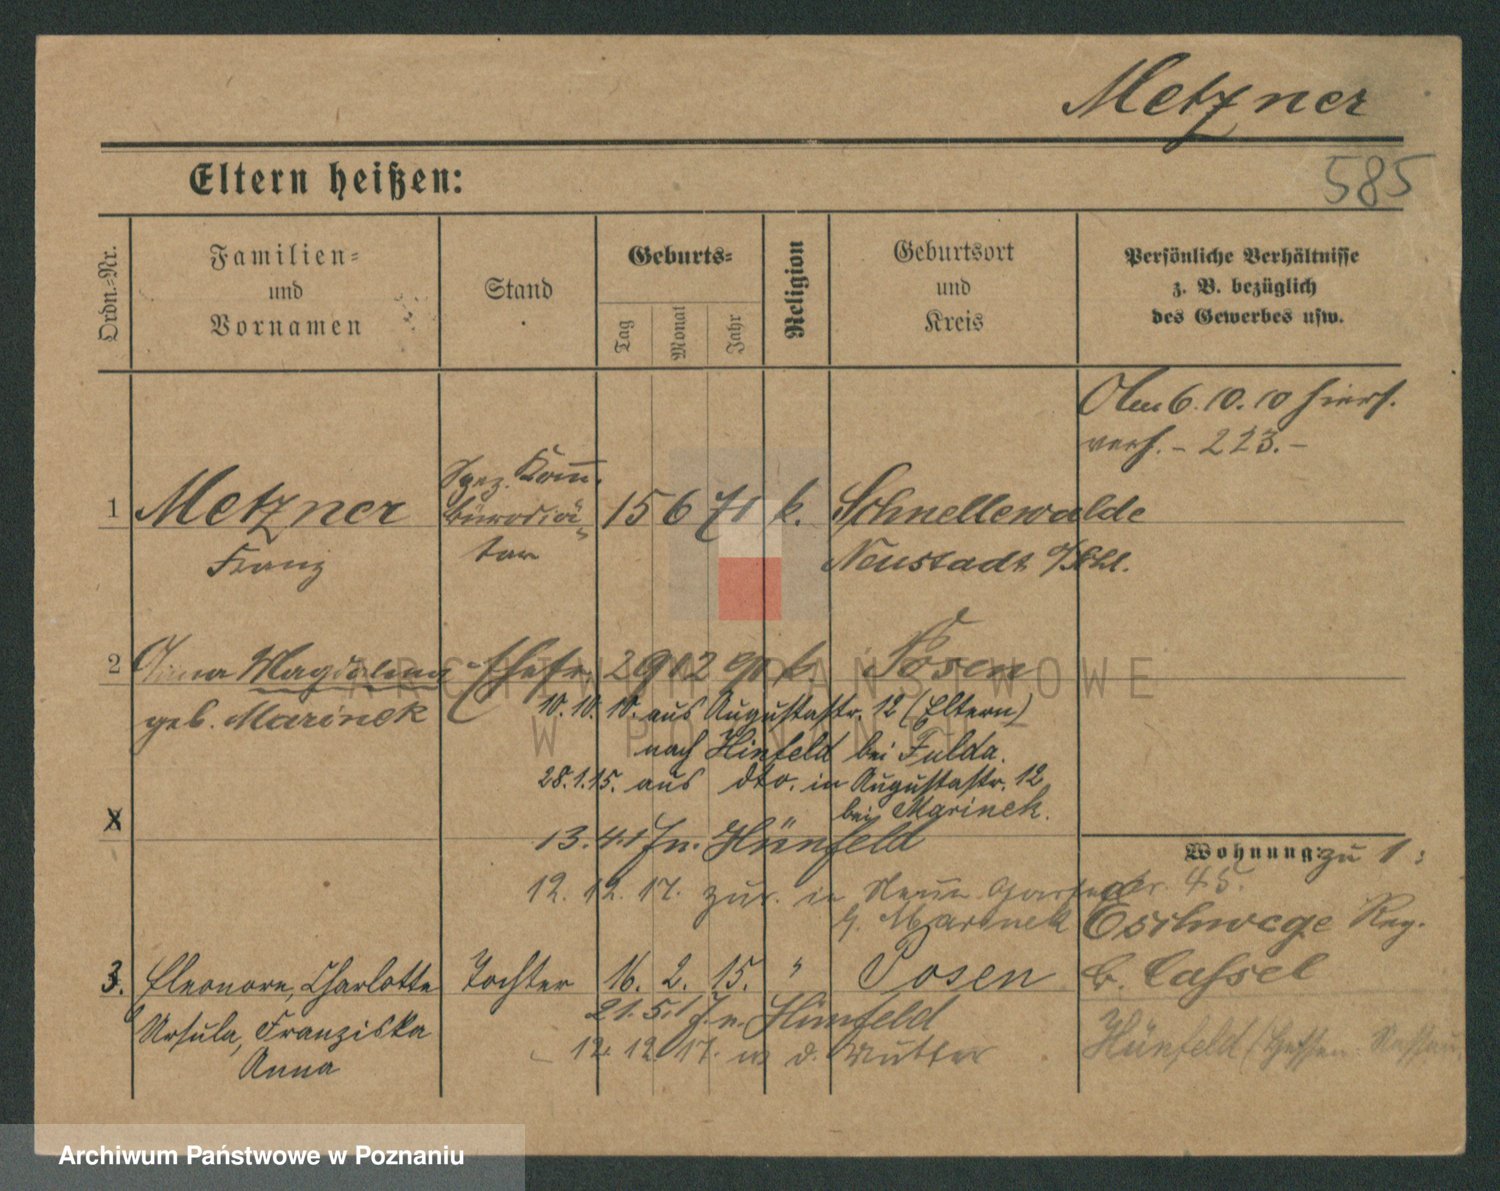 Metzner
585
Eltern heißen:
Ordn.-Nr.
Familien-
und
Vornamen
Stand
Geburts-
Tag
Monat
Jahr
Religion
Geburtsort
und
Kreis
Persönliche Verhältnisse
z. B. bezüglich
des Gewerbes usw.
6.10.10 hiers.
verh. - 223.-
1 Metzner
Franz
Spez. Komm.
Bürodiä-
tar
15 6 71 k.
Schnellewalde
Neustadt O/Schl.
2 Anna Magdalena
geb. Marinek
Ehefr. 29 12 k. Posen
10.10.10. aus Augustastr. 12 (Eltern)
nach Hünfeld bei Fulda.
28.1.15. aus dto. in Augustastr. 12
bei Marinek.
X
13.4.17 n. Hünfeld
12.12.17. zur. in Neue Gartenstr. 45.
b. Marinek
Wohnung: zu 1:
Eschwege Reg.
b. Cassel
Hünfeld (Hessen-Nassau
3. Eleonore, Charlotte
Ursula, Franziska
Anna
Tochter 16. 2. 15. " Posen
21.5.17 n. Hünfeld
12.12.17. m d. Mutter
ARCHIWUM PAŃSTWOWE
W POZNANIU
Archiwum Państwowe w Poznaniu